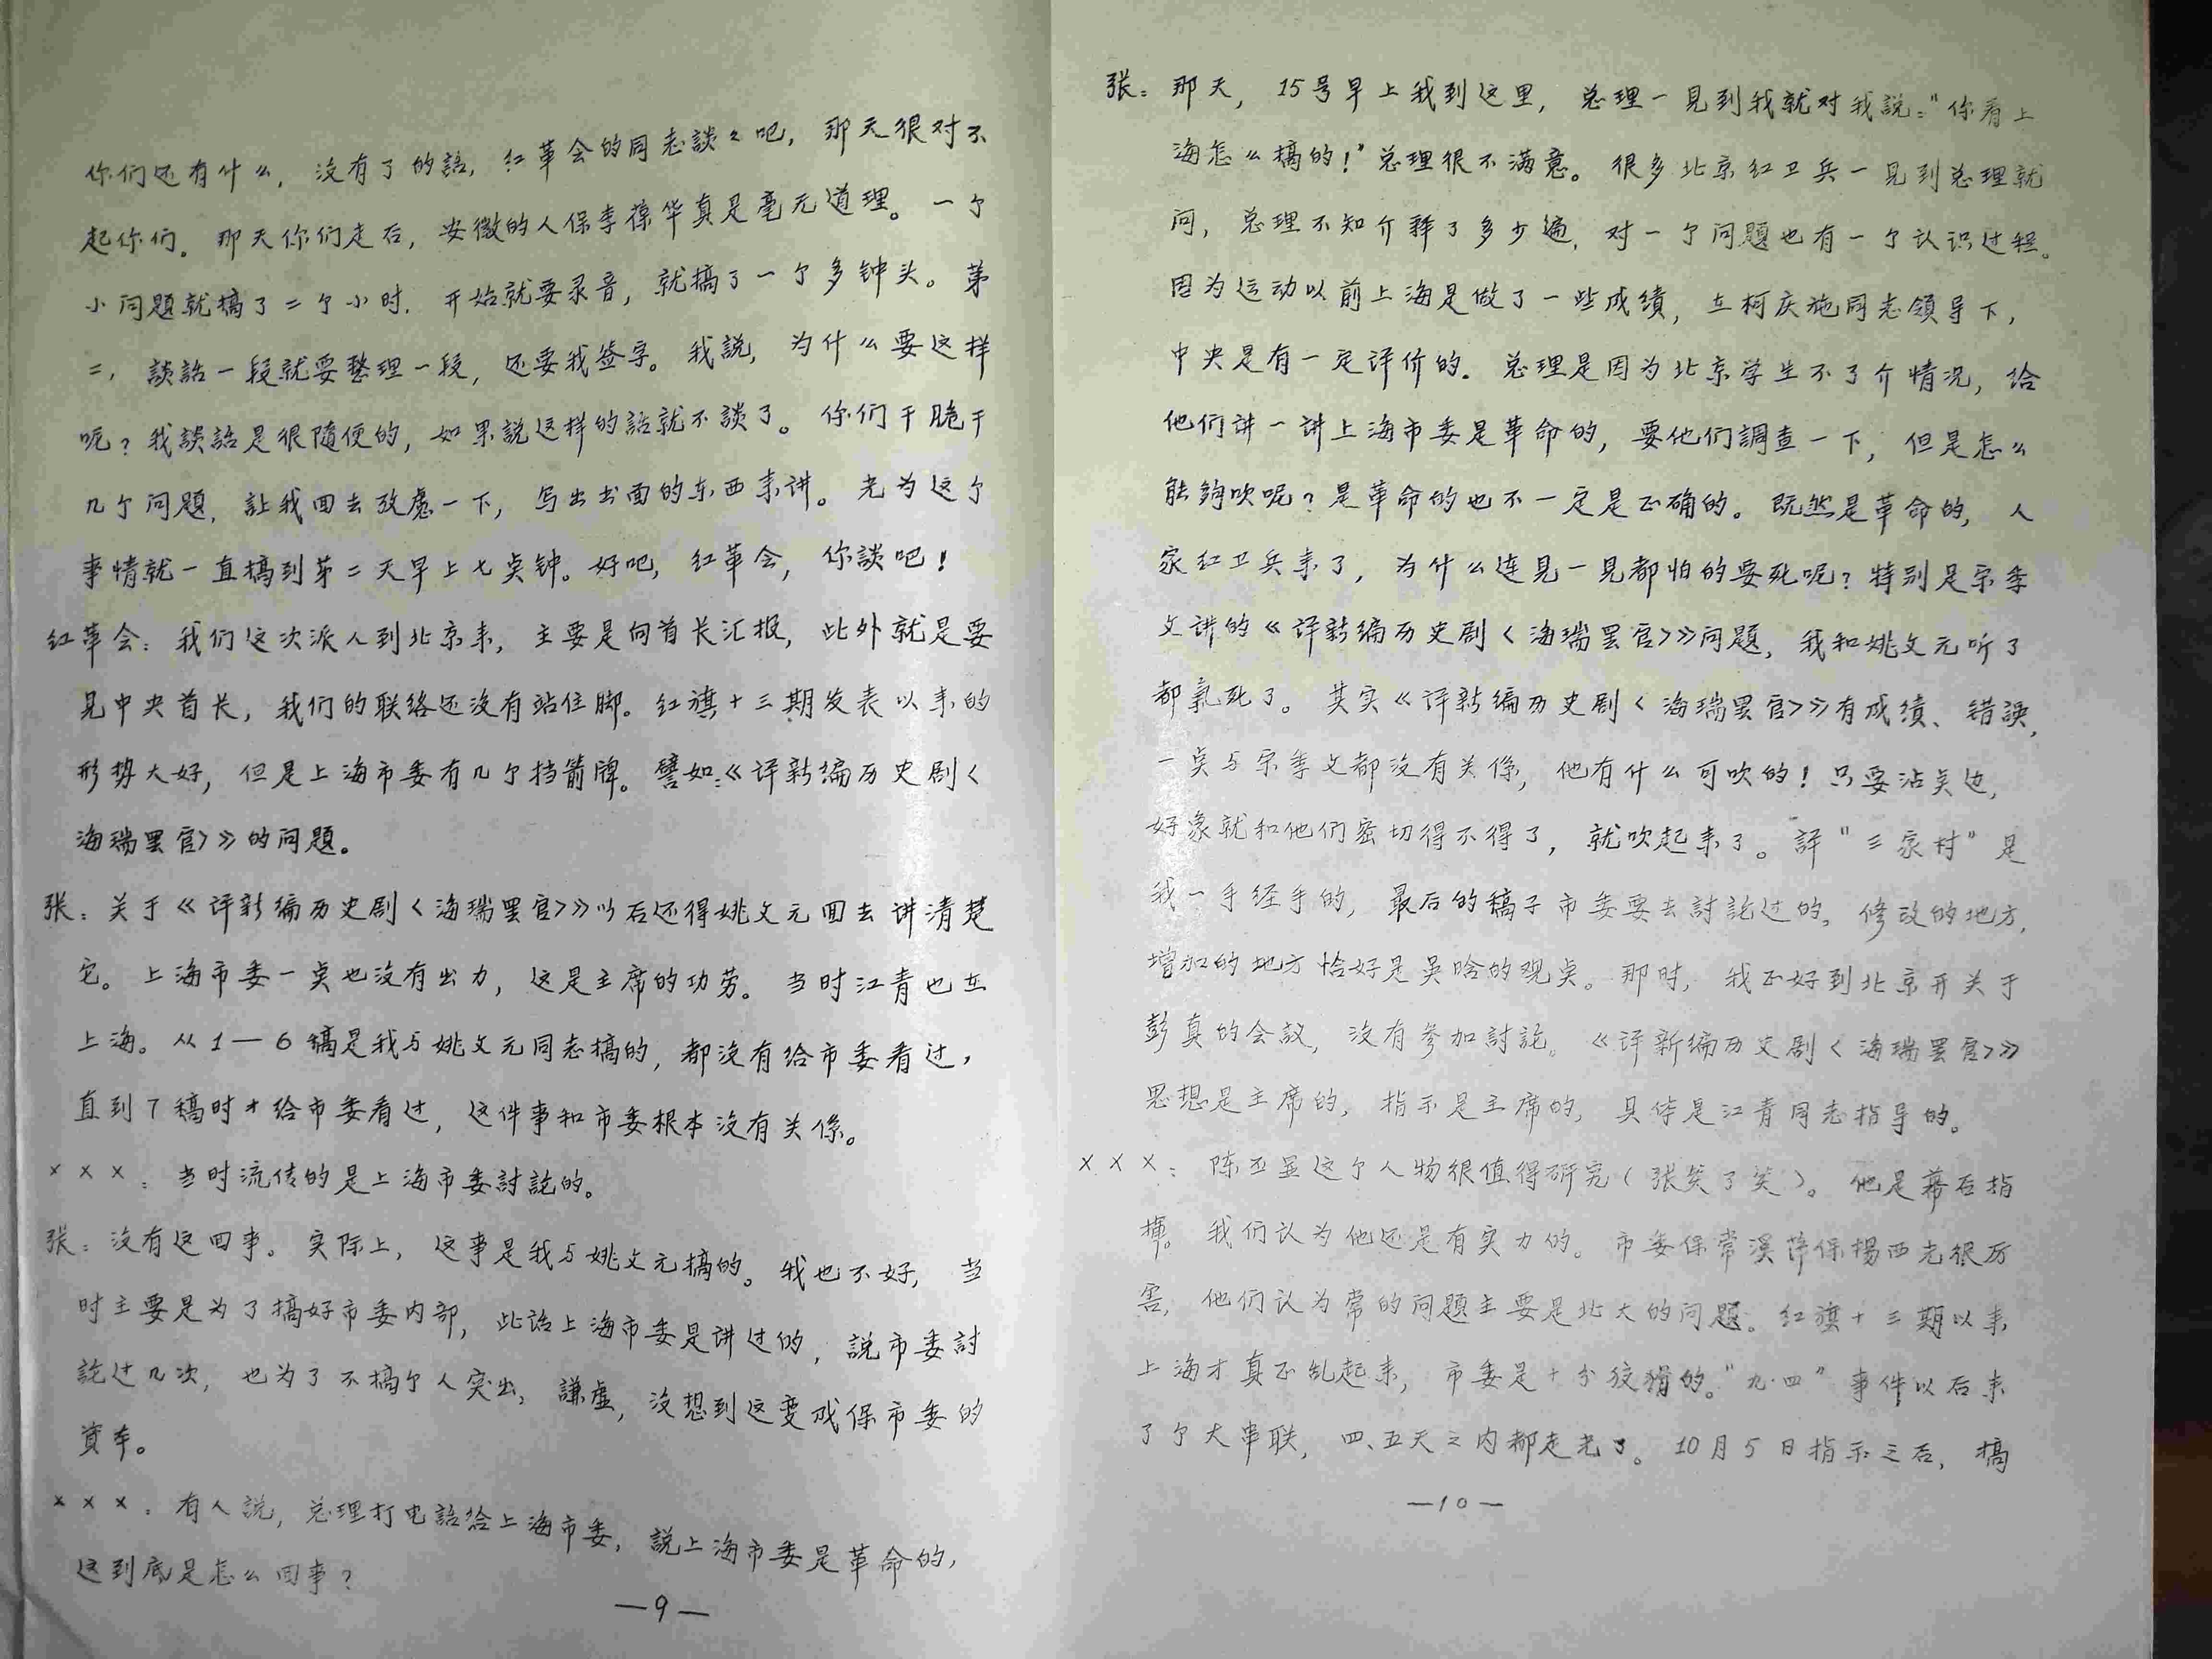 你们还有什么，没有了的話，红革会的同志談々吧，那天很对不
起你们。那天你们走后，安徽的人保李葆华真是毫无道理。一个
小问題就搞了二个小时．开始就要录音，就搞了一个多钟头。第
二，談話一段就要整理一段，还要我签字。我説，为什么要这样
呢？我談話是很随便的，如果説这样的話就不談了。你们干脆干
几个问題，讓我回去攷慮一下，写出书面的东西来讲。光为这个
事情就一直搞到第二天早上七点钟。好吧，红革会，你談吧！
红革会：我们这次派人到北京来，主要是向首长汇报，此外就是要
見中央首长，我们的联络还没有站住脚。红旗十三期发表以来的
形势大好，但是上海市委有几个挡箭牌。譬如：《评新编历史剧〈
海瑞罢官〉》的问題。
张：关于《评新编历史剧〈海瑞罢官〉》以后还得姚文元回去讲清楚
它。上海市委一点也没有出力，这是主席的功劳。当时江青也在
上海。从1—6稿是我与姚文元同志搞的，都没有给市委看过，
直到7稿时才给市委看过，这件事和市委根本没有关係。
×××：当时流传的是上海市委討論的。
张：没有这回事。实际上，这事是我与姚文元搞的。我也不好，当
时主要是为了搞好市委内部，此話上海市委是讲过的，説市委討
論过几次，也为了不搞个人突出，謙虚，没想到这变成保市委的
資本。
×××：有人説，总理打电話给上海市委，説上海市委是革命的，
这到底是怎么回事？
—9—
张：那天，15号早上我到这里，总理一見到我就对我説：“你看上
海怎么搞的！”总理很不满意。很多北京红卫兵一见到总理就
问，总理不知介释了多少遍，对一个问題也有一个认识过程。
因为运动以前上海是做了一些成绩，在柯庆施同志領导下，
中央是有一定评价的．总理是因为北京学生不了介情况，给
他们讲一讲上海市委是革命的，要他们調查一下，但是怎么
能夠吹呢？是革命的也不一定是正确的。既然是革命的，人
家红卫兵来了，为什么连見一見都怕的要死呢？特别是宗季
文讲的《评新编历史剧〈海瑞罢官〉》问題，我和姚文元听了
都氣死了。其实《评新编历史剧〈海瑞罢官〉》有成绩、错誤，
一点与宗季文都没有关係，他有什么可吹的！只要沾点边，
好象就和他们密切得不得了，就吹起来了。評“三家村”是
我一手经手的，最后的稿子市委要去討論过的。修改的地方，
增加的地方恰好是吴晗的观点。那时，我正好到北京开关于
彭真的会議，没有参加討論。《评新编历史剧〈海瑞罢官〉》
思想是主席的，指示是主席的，具体是江青同志指导的。
×××：陈丕显这个人物很值得研究（张笑了笑）。他是幕后指
揮。我们认为他还是有实力的。市委保常溪萍保楊西光很厉
害，他们认为常的问題主要是北大的问題。红旗十三期以来，
上海才真正乱起来，市委是十分狡猾的。“九·四”事件以后来
了个大串联，四、五天之内都走光了。10月5日指示之后，搞
—10—